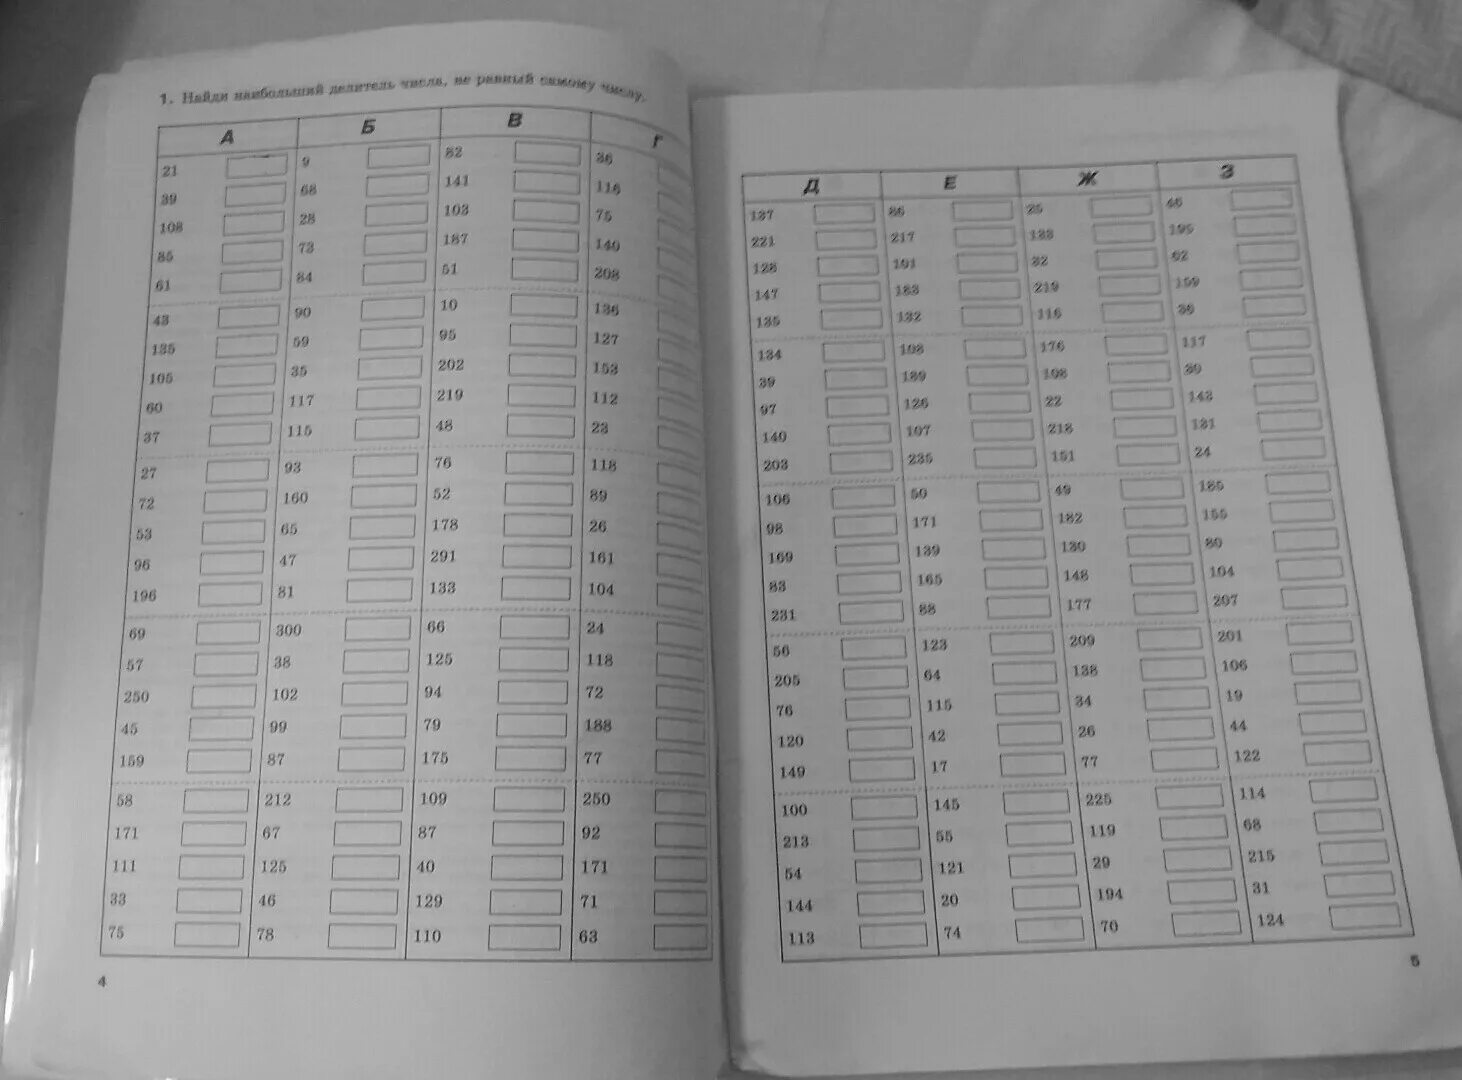 1. Найди наибольший делитель числа, не равный самому числу.
А Б В Г
21 9 82 36
39 68 141 116
108 28 103 75
85 73 187 140
61 84 51 208
43 90 10 136
135 59 95 127
105 35 202 153
60 117 219 112
37 115 48 23
27 93 76 118
72 160 52 89
53 65 178 26
96 47 291 161
196 81 133 104
69 300 66 24
57 38 125 118
250 102 94 72
45 99 79 188
159 87 175 77
58 212 109 250
171 67 87 92
111 125 40 171
33 46 129 71
75 78 110 63
4
Д Е Ж З
137 86 25 46
221 217 195
128 32 62
147 183 219 159
135 132 116
134 176 117
39 189 198 39
97 126 22 143
140 107 218 131
203 235 151 24
106 50 49 185
98 171 182 155
169 139 130
83 165 148 104
231 88 177 207
56 123 209 201
205 64 138 106
76 115 34 19
120 42 26 44
149 17 77 122
100 145 225 114
213 55 119 68
54 121 29 215
144 20 194 31
113 74 70 124
5